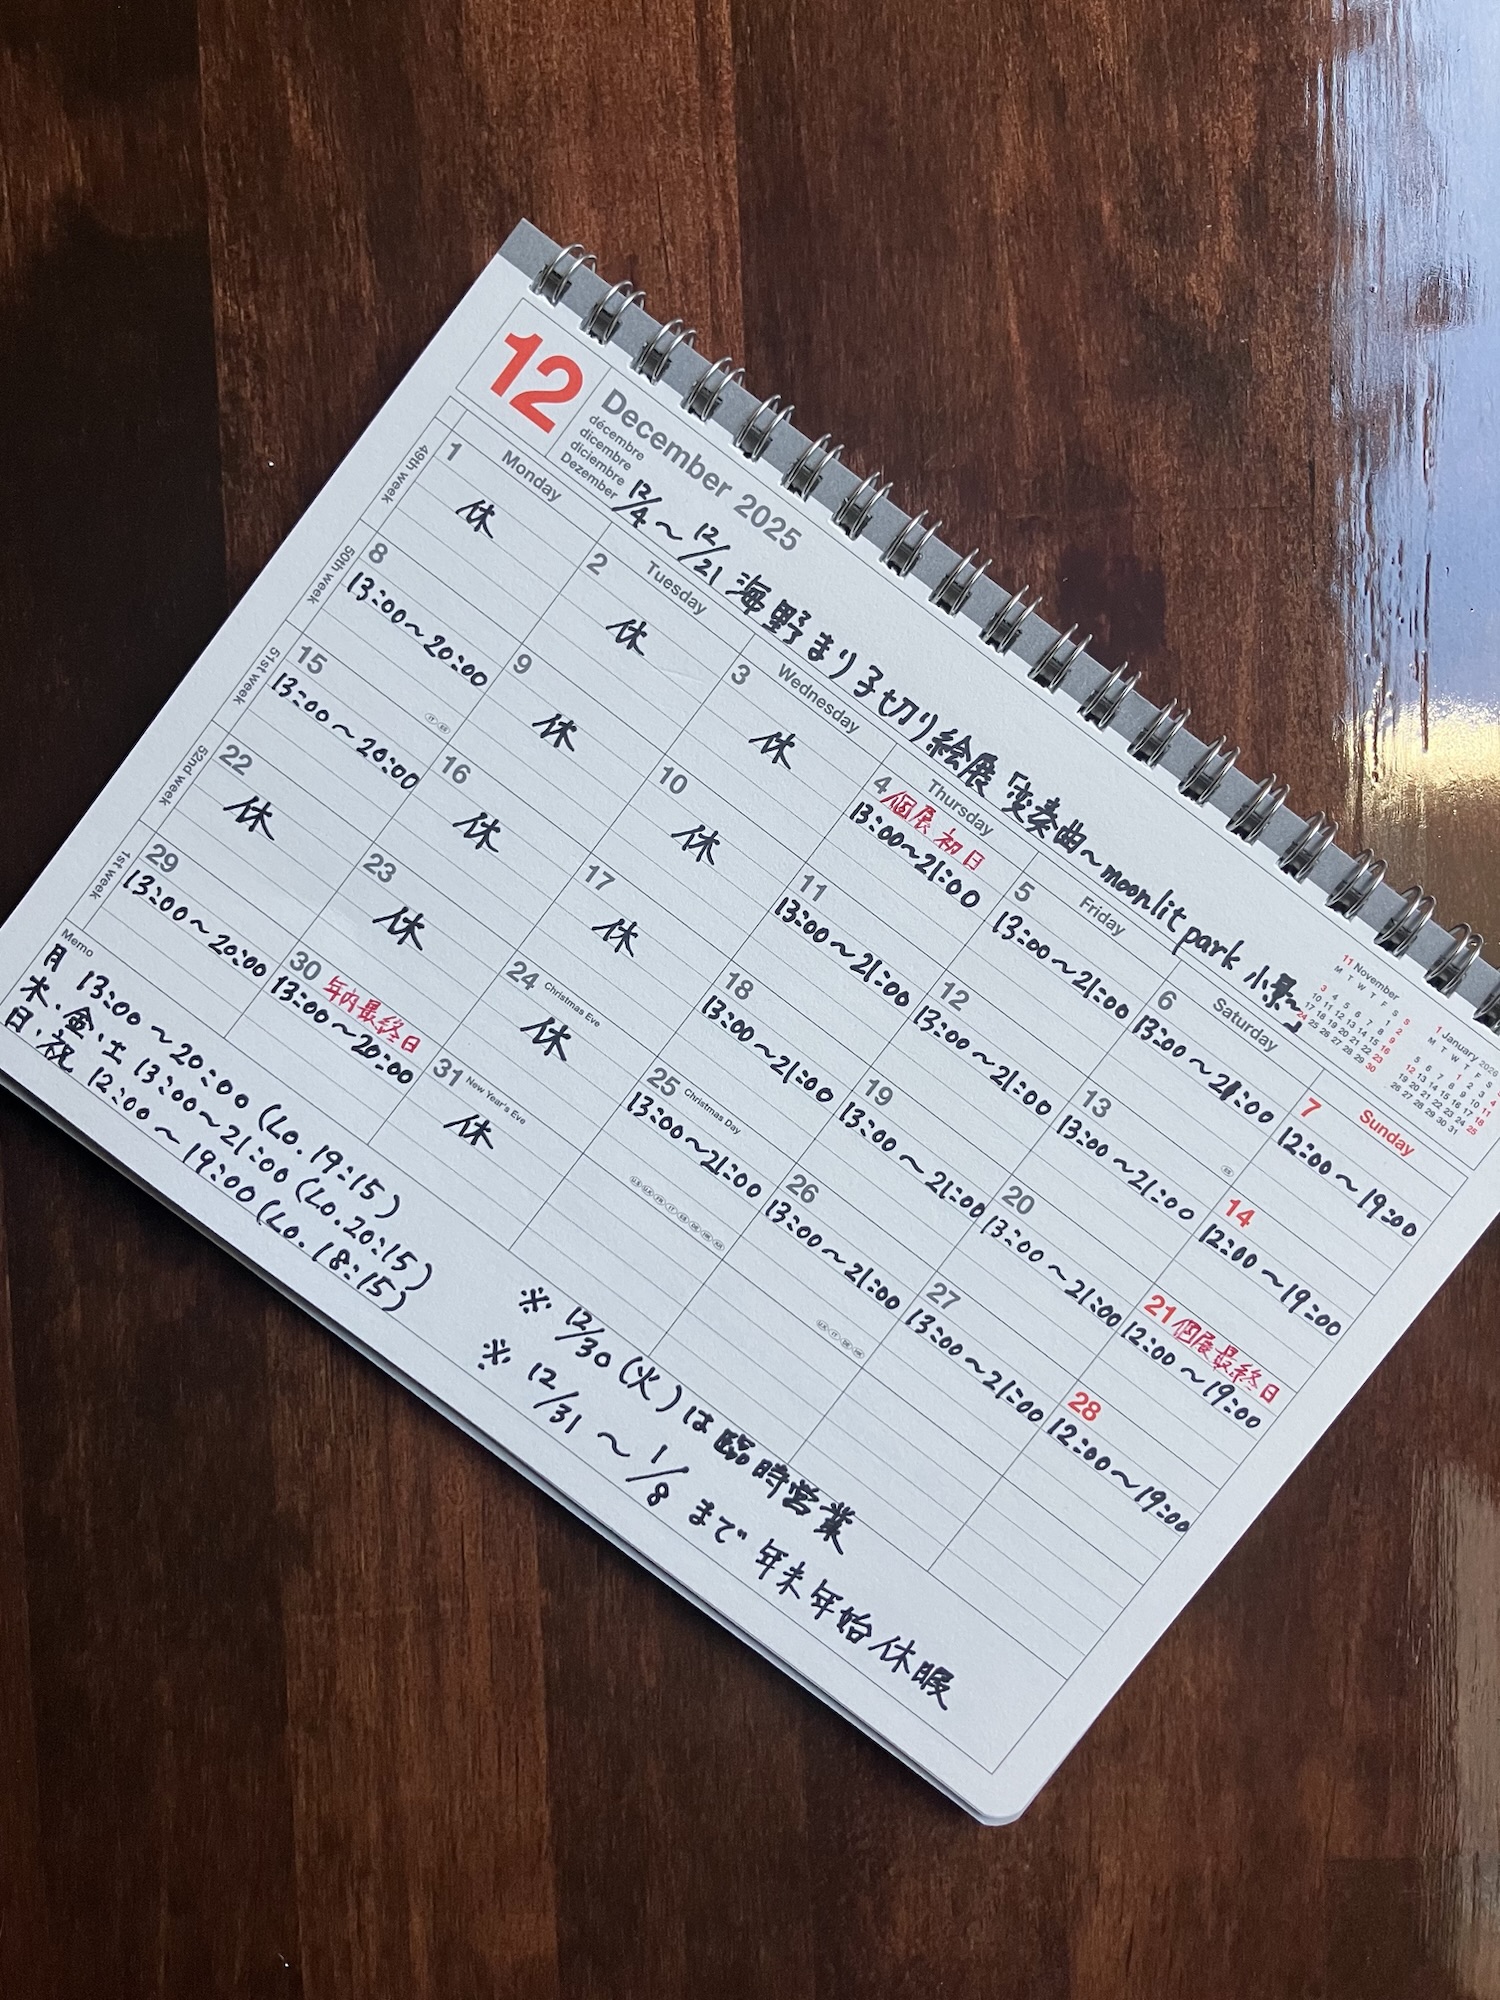 12
December 2025
décembre
dicembre
diciembre
Dezember
12/4～12/21 海野まり子切り絵展「変奏曲～moonlit park 小景～」
11 November
M T W T F S S
1 2
3 4 5 6 7 8 9
10 11 12 13 14 15 16
17 18 19 20 21 22 23
24 25 26 27 28 29 30
1 January 2026
M T W T F S
1 2 3 4
5 6 7 8 9 10 11
12 13 14 15 16 17 18
19 20 21 22 23 24 25
26 27 28 29 30 31
Monday Tuesday Wednesday Thursday Friday Saturday Sunday
49th week
1 休
2 休
3 休
4 個展初日
13:00～21:00
5
13:00～21:00
6
13:00～21:00
7
12:00～19:00
50th week
8
13:00～20:00
9 休
10 休
11
13:00～21:00
12
13:00～21:00
13
13:00～21:00
14
12:00～19:00
51st week
15
13:00～20:00
16 休
17 休
18
13:00～21:00
19
13:00～21:00
20
13:00～21:00
21 個展最終日
12:00～19:00
52nd week
22 休
23 休
24 Christmas Eve
休
25 Christmas Day
13:00～21:00
26
13:00～21:00
27
13:00～21:00
28
12:00～19:00
1st week
29
13:00～20:00
30 年内最終日
13:00～20:00
31 New Year's Eve
休
Memo
月 13:00～20:00 (Lo. 19:15)
木・金・土 13:00～21:00 (Lo. 20:15)
日・祝 12:00～19:00 (Lo. 18:15)
※ 12/30 (火) は臨時営業
※ 12/31 ～ 1/8 まで 年末年始休暇